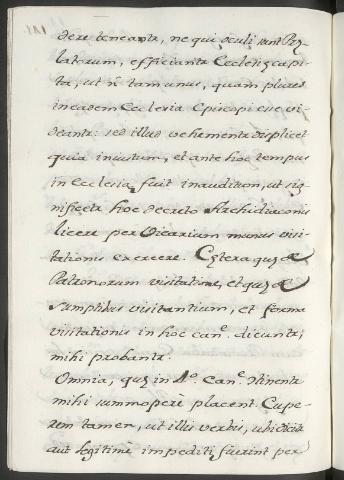 dere teneantr, ne qui oculi sunt Pręlatorum, efficiantr Ecclesię capita, ut ñ tam unus, quam plures
in eadem Ecclesia Episcopi esse videantr: sed illud vehementer displicet
quia iniustum, et ante hoc tempus
in Ecclesia fuit inauditum, ut significetr hoc decreto Archidiaconis
licere per Vicarium munus visitationis exercere. Cętera quę de
Patronorum visitatione, et quę de
sumptibus visitantium, et forma
visitationis in hoc can.e dicuntr,
mihi probantr.
Omnia, quę in 4.o Can.e continentr
mihi summoperè placent. Cuperem tamen, ut illis verbis, ubi
aut legitimè impediti fuerint per